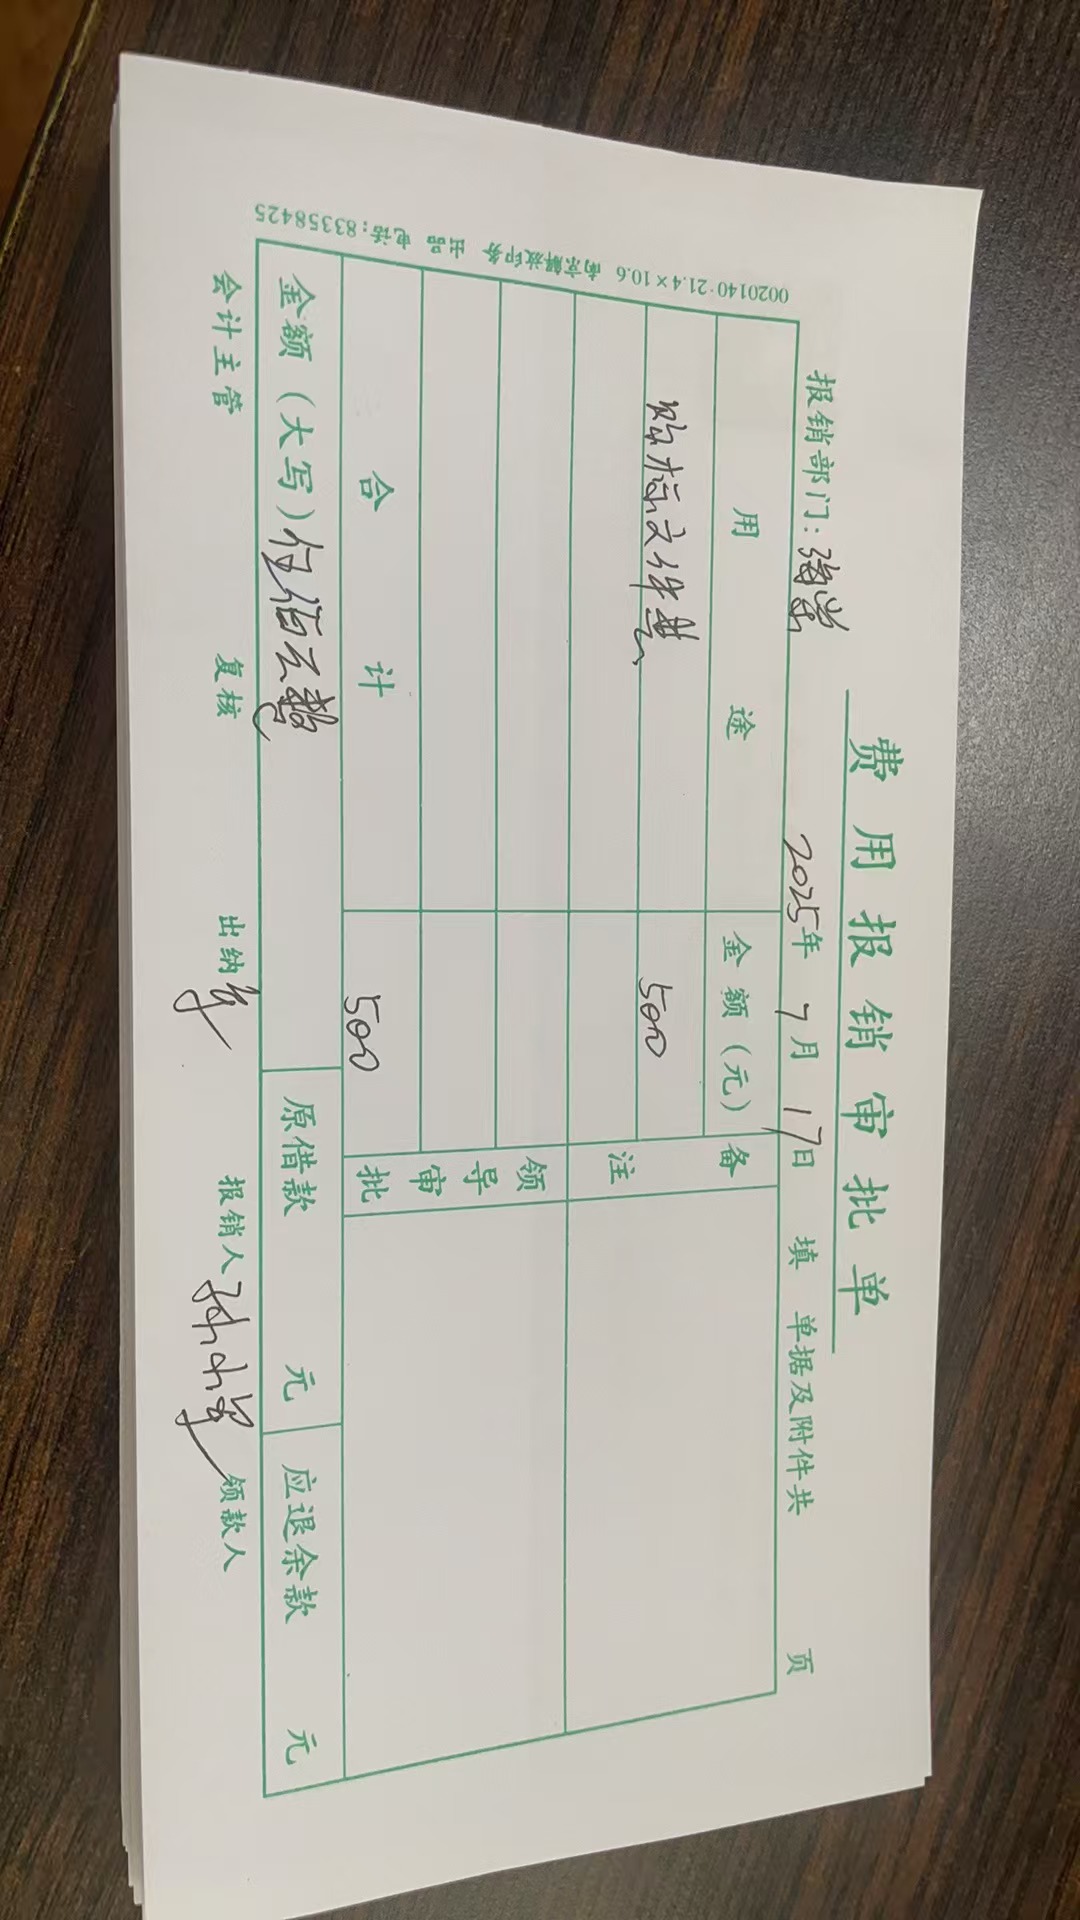 费用报销审批单
报销部门: 2025年 7月 17日 填 单据及附件共 页
用途 金额(元) 备注
购标文件费 500
领导审批
合计 500
金额(大写)伍佰元整 原借款 元 应退余款 元
会计主管 复核 出纳 报销人 领款人
0020140·21.4×10.6 南京解放印务 出品 电话:83358425